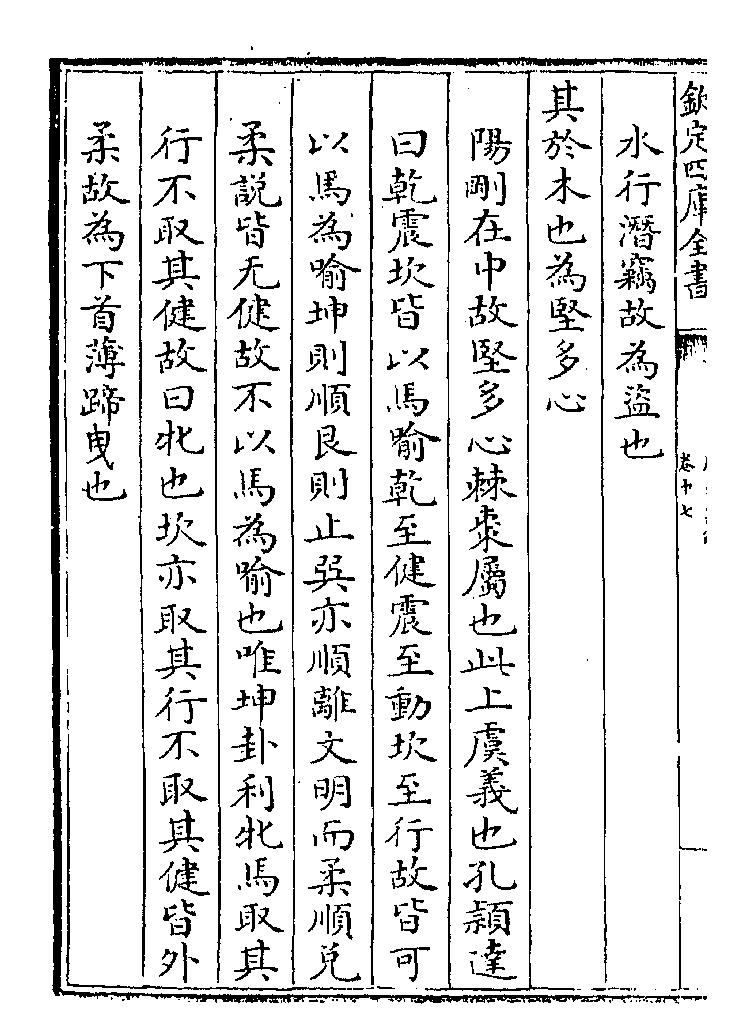 欽定四庫全書
卷十七
水行潛竊故為盜也
其於木也為堅多心
陽剛在中故堅多心棘棗屬也此上虞義也孔穎達
曰乾震坎皆以馬喻乾至健震至動坎至行故皆可
以馬為喻坤則順艮則止巽亦順離文明而柔順兌
柔說皆无健故不以馬為喻也唯坤卦利牝馬取其
行不取其健故曰牝也坎亦取其行不取其健皆外
柔故為下首薄蹄曳也